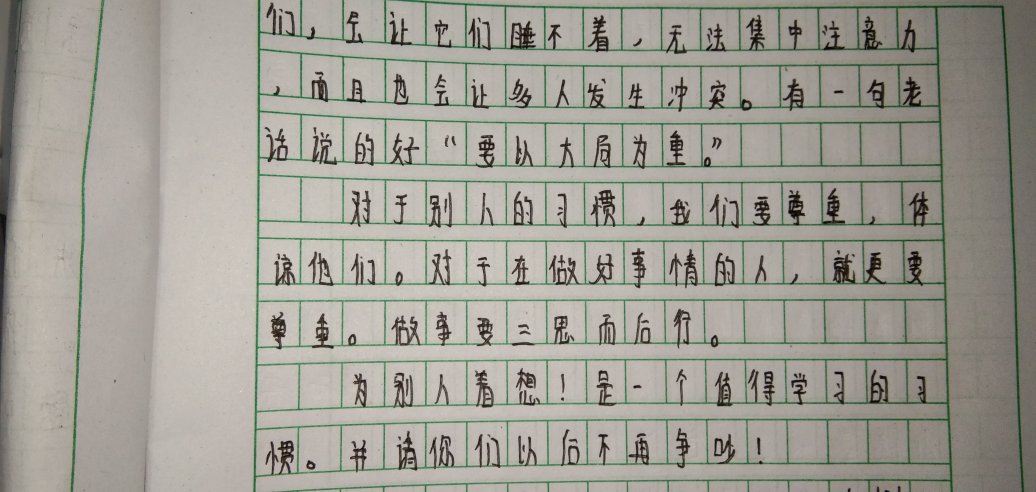 们，会让它们睡不着，无法集中注意力
，而且也会让多人发生冲突。有一句老
话说的好“要以大局为重。”
对于别人的习惯，我们要尊重，体
谅他们。对于在做好事情的人，就更要
尊重。做事要三思而后行。
为别人着想！是一个值得学习的习
惯。并请你们以后不再争吵！